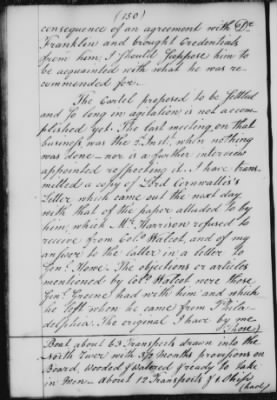 (150)
consequence of an agreement with Dr.
Franklin and brought Credentials
from him; I should Suppose him to
be acquainted with what he was re-
commended for.
The Cartel proposed to be settled
and so long in agitation is not accom-
plished yet. The last meeting on that
business was the 2 Inst. when nothing
was done – nor is a further interview
appointed respecting it. I have trans-
mitted a copy of Lord Cornwallis's
Letter which came out the next day
with that of the paper alluded to by
him, which Mr. Harrison refused to
receive from Colo. Walcot, and of my
answer to the latter in a letter to
Genl. Howe. The objections or articles
mentioned by Colo. Walcot were those
Genl. Greene had with him and which
he left when he came from Phila-
delphia. The original I have by me
(those)
Boat about 63 Transports drawn into the
North River with months provisions on
Board, wooded & watered & ready to take
in Men – about 12 Transports & 4 Ships